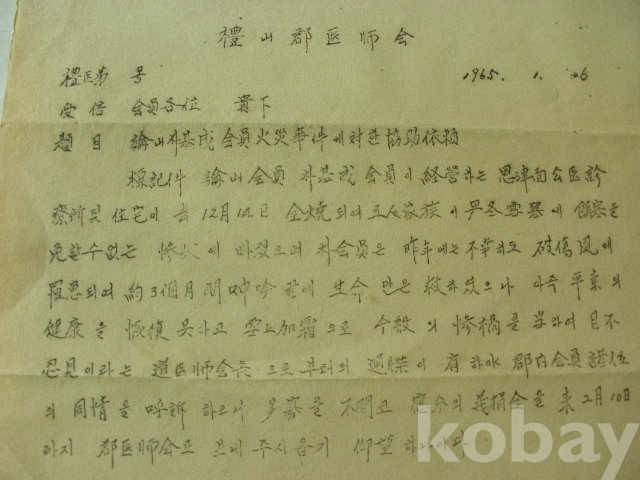 禮山郡医師会
禮医第 号 1965. 1. 26
受信 会員各位 貴下
題目 論山朴基成会員火災事件에対한協助依頼
標記件 論山会員 朴基成会員이 経営하는 恩津面公医診
療所및 住宅이 去 12月14日 全焼되여 五人家族이 厳冬雪寒에 을
免할수없는 惨状에 빠졌으며 朴会員은 昨年에는 不幸히도 破傷風에
罹患되여 約3個月間 呻吟끝에 生命만은 救하였으나 아즉 平素의
健康을 恢復못하고 雪上加霜으로 今般의 惨禍를 当하여 目不
忍見이라는 道医師会長으로부터의 이 有하야 郡内会員諸位
의 同情을 呼訴하오니 多寡를 不問코 応分의 義捐金을 来 2月10日
까지 郡医師会로 보내주시옵기 仰望하나이다
kobay